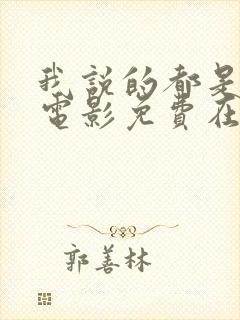 我說的都是
電影免費在
郭善林